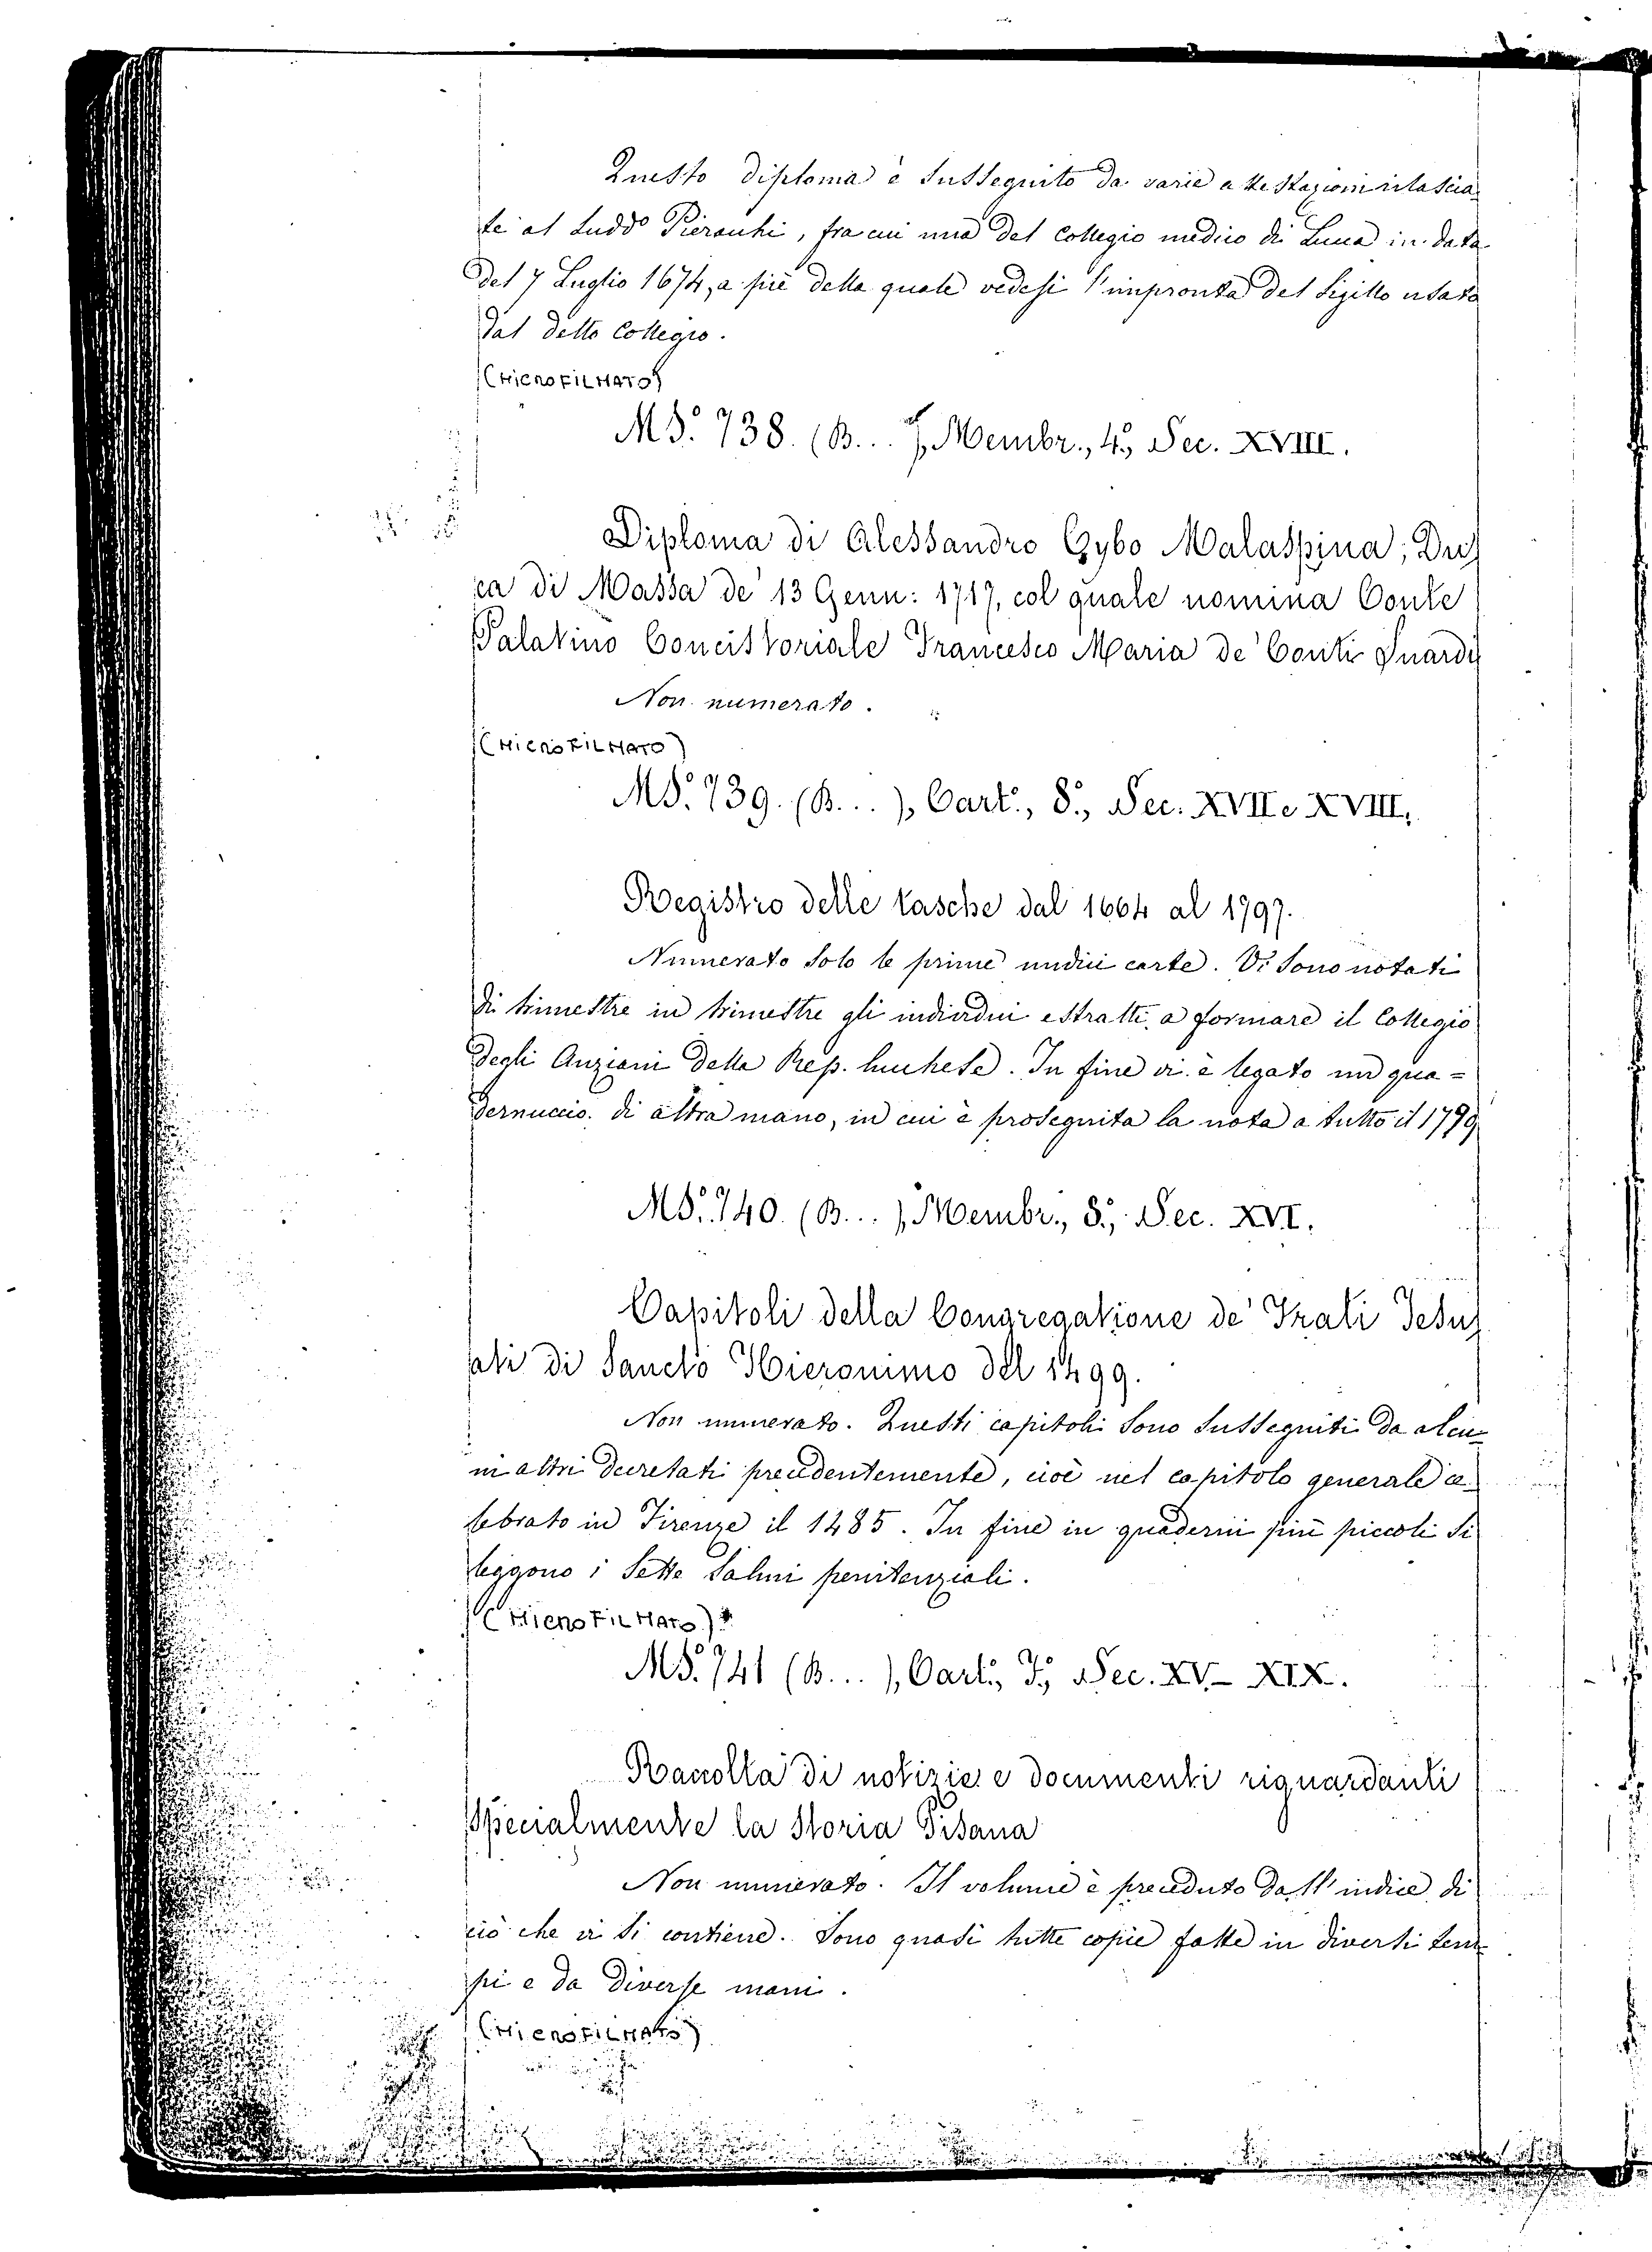 Questo diploma è susseguito da varie attestazioni rilascia-
te al sudd.o Pierauchi, fra cui una del Collegio medico di Lucca in data
del 7 Luglio 1674, a piè della quale vedesi l'impronta del sigillo usato
dal detto Collegio.
(MICROFILMATO)
MS. 738. (B... ), Membr., 4°, Sec. XVIII.
Diploma di Alessandro Cybo Malaspina, Du-
ca di Massa de' 13 Genn: 1717, col quale nomina Conte
Palatino Concistoriale Francesco Maria de' Conti Guardi
Non numerato.
(MICROFILMATO)
MS. 739. (B... ), Cart., 8°, Sec. XVII e XVIII.
Registro delle tasche dal 1664 al 1797.
Numerato solo le prime undici carte. Vi sono notati
di trimestre in trimestre gli individui estratti a formare il Collegio
degli Anziani della Rep. lucchese. In fine vi è legato un qua=
dernuccio di altra mano, in cui è proseguita la nota a tutto il 1799
MS. 740. (B... ), Membr., 8°, Sec. XVI.
Capitoli della Congregatione de' Frati Jesu-
ati di Sancto Hieronimo del 1499.
Non numerato. Questi capitoli sono susseguiti da alcu-
ni altri decretati precedentemente, cioè nel capitolo generale ce-
lebrato in Firenze il 1485. In fine in quaderni più piccoli si
leggono i sette salmi penitenziali.
(MICROFILMATO)
MS. 741 (B... ), Cart., F°, Sec. XV- XIX.
Raccolta di notizie e documenti riguardanti
specialmente la storia Pisana
Non numerato. Il volume è preceduto dall'indice di
ciò che vi si contiene. Sono quasi tutte copie fatte in diversi tem-
pi e da diverse mani.
(MICROFILMATO)